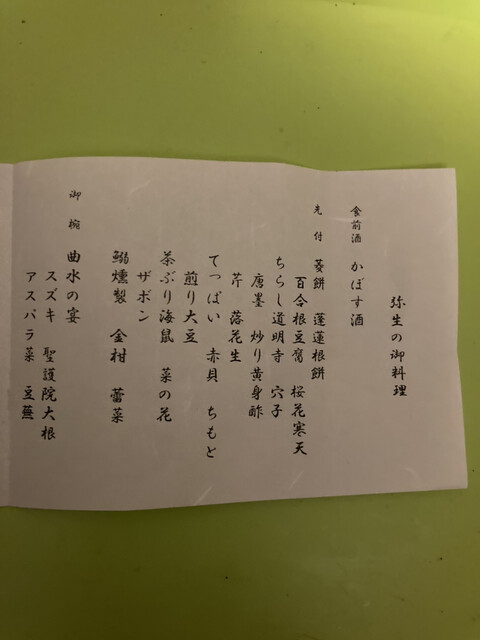 弥生の御料理
食前酒 かぼす酒
先付 菱餅 蓬蓮根餅
百合根豆腐 桜花寒天
ちらし道明寺 穴子
唐墨 炒り黄身酢
芹 落花生
てっぱい 赤貝 ちもと
煎り大豆
茶ぶり海鼠 菜の花
ザボン
鰯燻製 金柑 蕾菜
御椀 曲水の宴
スズキ 聖護院大根
アスパラ菜 豆蕪